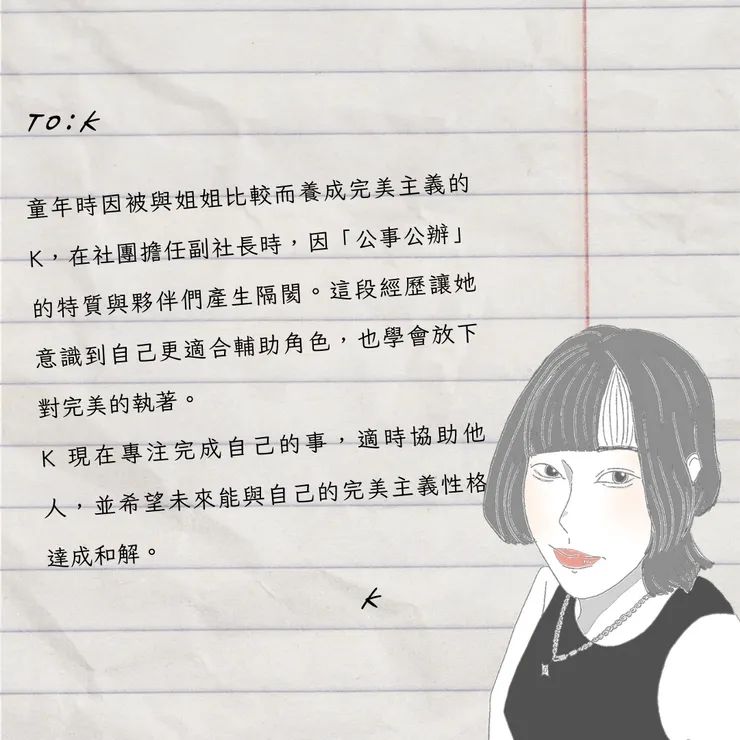 TO:K
童年時因被與姐姐比較而養成完美主義的
K，在社團擔任副社長時，因「公事公辦」
的特質與夥伴們產生隔閡。這段經歷讓她
意識到自己更適合輔助角色，也學會放下
對完美的執著。
K 現在專注完成自己的事，適時協助他
人，並希望未來能與自己的完美主義性格
達成和解。
K